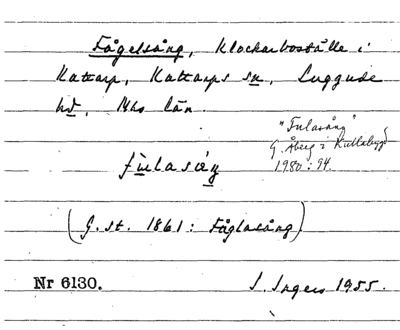 Fågelsång, klockarboställe i
Kattarp, Kattarps sn, Luggude
hd, Mhs län.
"Fulasång"
G. Åberg i Kullabygd
1980: 94.
fùlasáŋ
(G. st. 1861: Foglasång)
Nr 6130.
I. Ingers 1955.